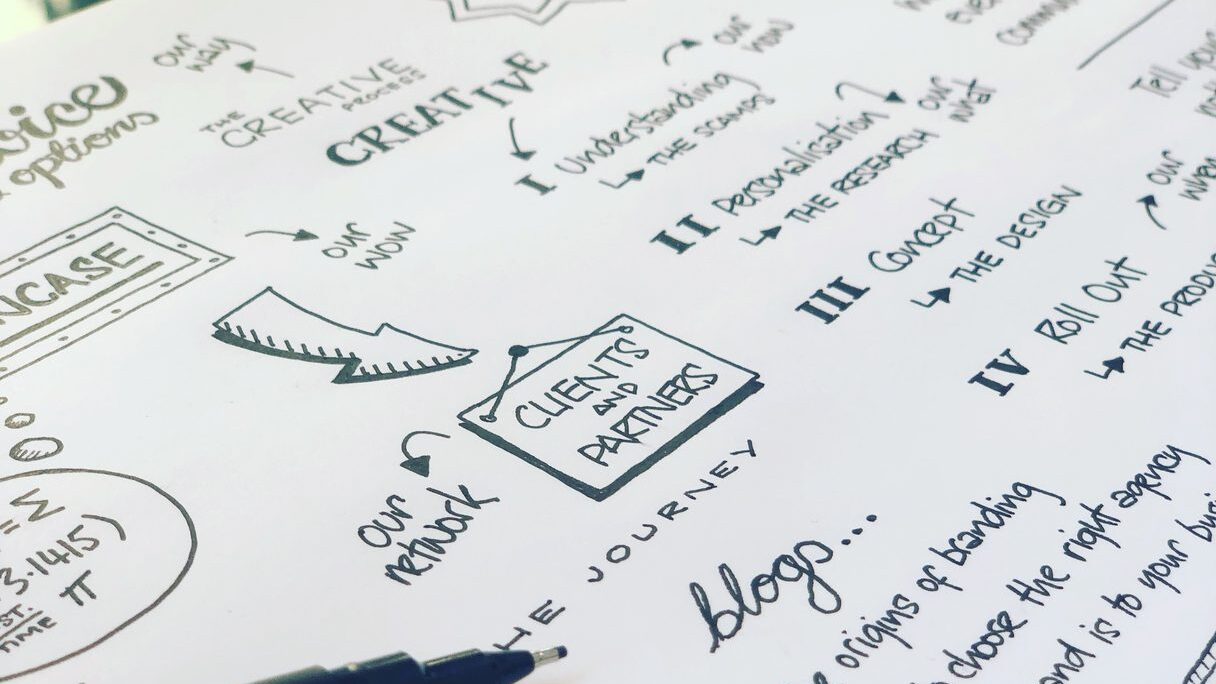 our
way
options
THE
CREATIVE
PROCESS
CREATIVE
our
wow
I Understanding
THE SCAMPS
our
now
II Personalisation
THE RESEARCH
our
what
III Concept
THE DESIGN
our
when
IV Roll Out
CLIENTS
AND
PARTNERS
our
network
THE JOURNEY
3.1415)
π
blogs...
origins of branding
choose the right agency
is to your
Tell your